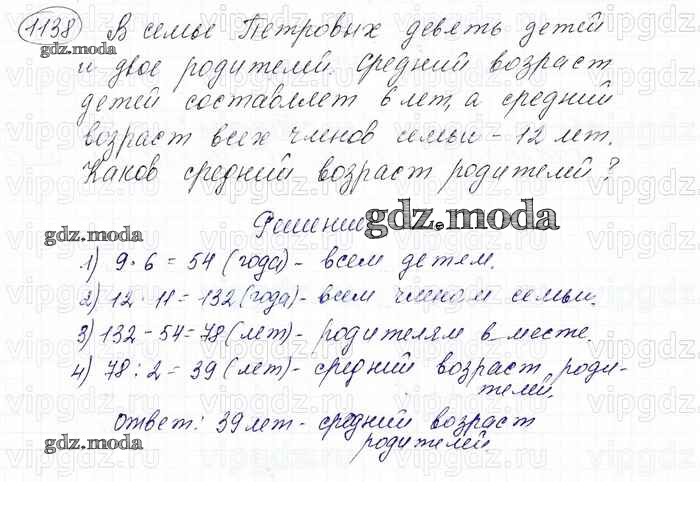 1138 В семье Петровых девять детей
gdz.moda
и двое родителей. Средний возраст
детей составляет 6 лет, а средний
возраст всех членов семьи - 12 лет.
Каков средний возраст родителей?
Решение gdz.moda
gdz.moda
1) 9 · 6 = 54 (года) - всем детям.
2) 12 · 11 = 132 (года) - всем членам семьи.
3) 132 - 54 = 78 (лет) - родителям в месте.
gdz.moda
4) 78 : 2 = 39 (лет) - средний возраст роди-
телей.
Ответ: 39 лет - средний возраст
родителей.
gdz.moda